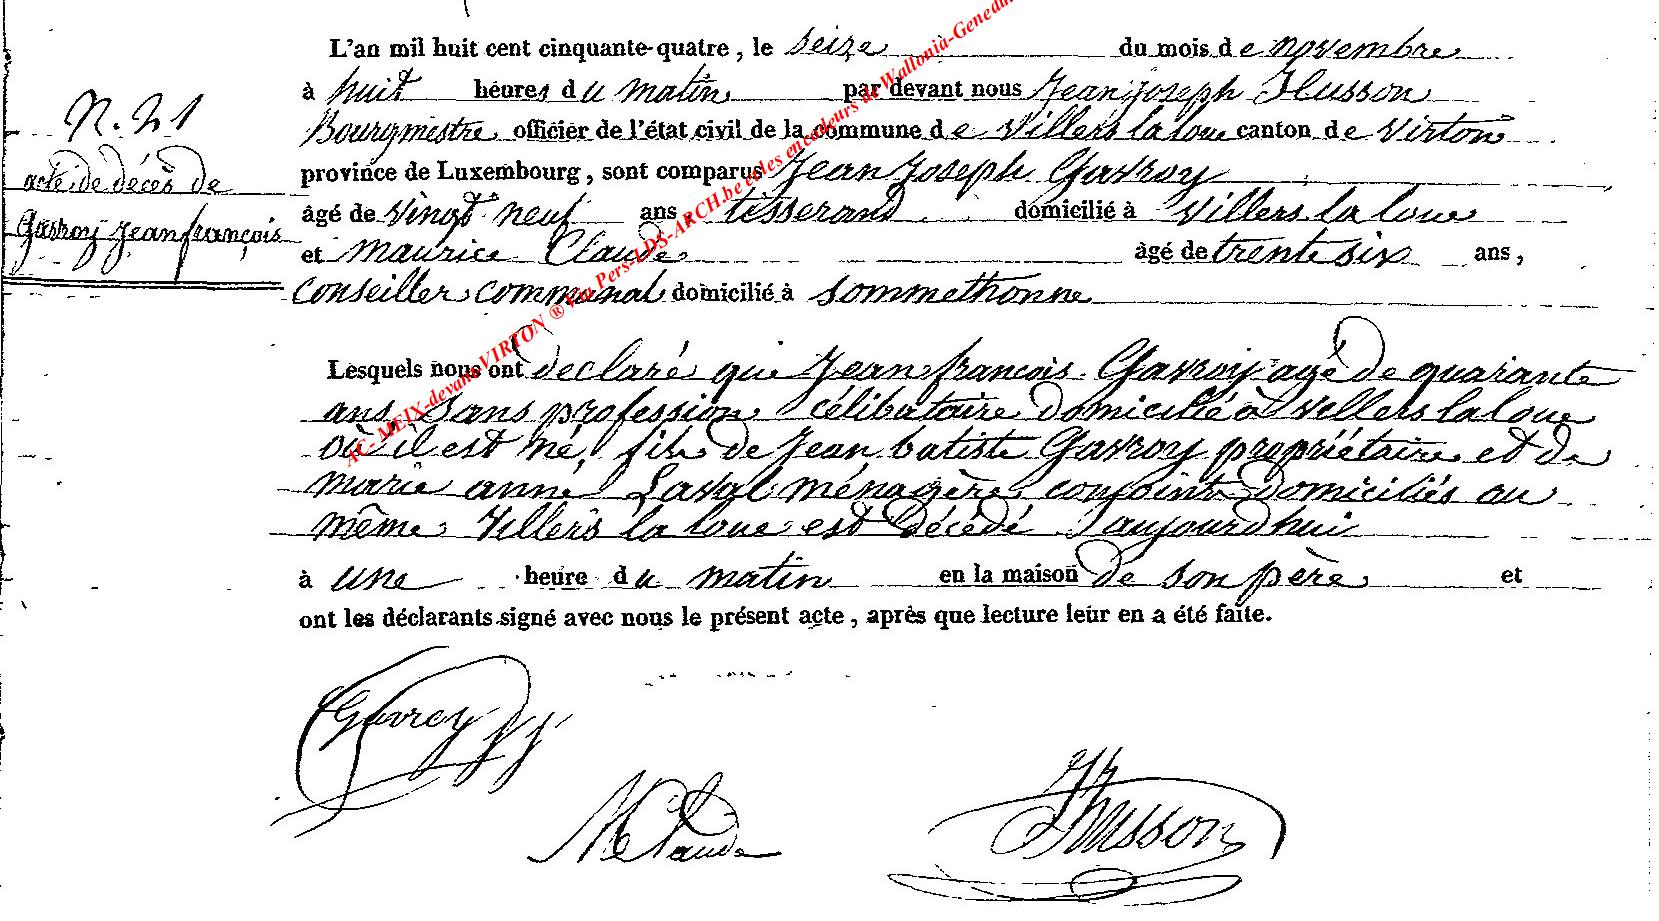 L'an mil huit cent cinquante-quatre, le seize du mois de novembre
à huit heures du matin par devant nous Jean joseph Husson
Bourgmestre officier de l'état civil de la commune de Villers la loue canton de Virton
province de Luxembourg, sont comparus Jean Joseph Gavroy
âgé de vingt neuf ans tisserand domicilié à Villers la loue
et maurice Claude âgé de trente six ans,
Conseiller communal domicilié à Sommethonne
N. 21
acte de décès de
Gavroy Jean françois
Lesquels nous ont déclaré que Jean françois Gavroy agé de quarante
ans sans profession célibataire domicilié à Villers la loue
où il est né, fils de Jean batiste Gavroy propriétaire et de
marie anne Laval ménagère conjoints domiciliés au
même Villers la loue est décédé aujourdhui
à une heure du matin en la maison de son père et
ont les déclarants signé avec nous le présent acte, après que lecture leur en a été faite.
Gavroy JJ
M Claude
JJ Husson
AC- MEIX-devant-VIRTON ® Via Pers-LDS-ARCH.be et les encodeurs de Wallonia-Genedata